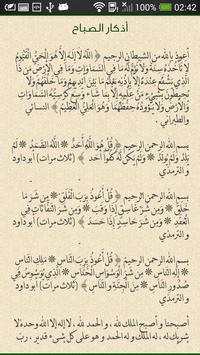 02:42
أذكار الصباح
أعوذ بالله من الشيطان الرجيم ﴿ اللَّهُ لَا إِلَهَ إِلَّا هُوَ الْحَيُّ الْقَيُّومُ
لَا تَأْخُذُهُ سِنَةٌ وَلَا نَوْمٌ لَهُ مَا فِي السَّمَاوَاتِ وَمَا فِي الْأَرْضِ مَنْ ذَا
الَّذِي يَشْفَعُ عِنْدَهُ إِلَّا بِإِذْنِهِ يَعْلَمُ مَا بَيْنَ أَيْدِيهِمْ وَمَا خَلْفَهُمْ وَلَا
يُحِيطُونَ بِشَيْءٍ مِنْ عِلْمِهِ إِلَّا بِمَا شَاءَ وَسِعَ كُرْسِيُّهُ السَّمَاوَاتِ
وَالْأَرْضَ وَلَا يَئُودُهُ حِفْظُهُمَا وَهُوَ الْعَلِيُّ الْعَظِيمُ ﴾ (النسائي
والطبراني)
بسم الله الرحمن الرحيم ﴿ قُلْ هُوَ اللَّهُ أَحَدٌ ❋ اللَّهُ الصَّمَدُ ❋ لَمْ
يَلِدْ وَلَمْ يُولَدْ ❋ وَلَمْ يَكُنْ لَهُ كُفُوًا أَحَدٌ ﴾ (ثلاث مرات) (أبو داود
و الترمذي)
بسم الله الرحمن الرحيم ﴿ قُلْ أَعُوذُ بِرَبِّ الْفَلَقِ ❋ مِنْ شَرِّ مَا
خَلَقَ ❋ وَمِنْ شَرِّ غَاسِقٍ إِذَا وَقَبَ ❋ وَمِنْ شَرِّ النَّفَّاثَاتِ فِي
الْعُقَدِ ❋ وَمِنْ شَرِّ حَاسِدٍ إِذَا حَسَدَ ﴾ (ثلاث مرات) (أبو داود
و الترمذي)
بسم الله الرحمن الرحيم ﴿ قُلْ أَعُوذُ بِرَبِّ النَّاسِ ❋ مَلِكِ النَّاسِ
❋ إِلَهِ النَّاسِ ❋ مِنْ شَرِّ الْوَسْوَاسِ الْخَنَّاسِ ❋ الَّذِي يُوَسْوِسُ فِي
صُدُورِ النَّاسِ ❋ مِنَ الْجِنَّةِ وَالنَّاسِ ﴾ (ثلاث مرات) (أبو داود
و الترمذي)
أصبحنا و أصبح الملك لله ، و الحمد لله ، لا إله إلا الله وحده لا
شريك له ، له الملك وله الحمد ، و هو على كل شيء قدير ، رب